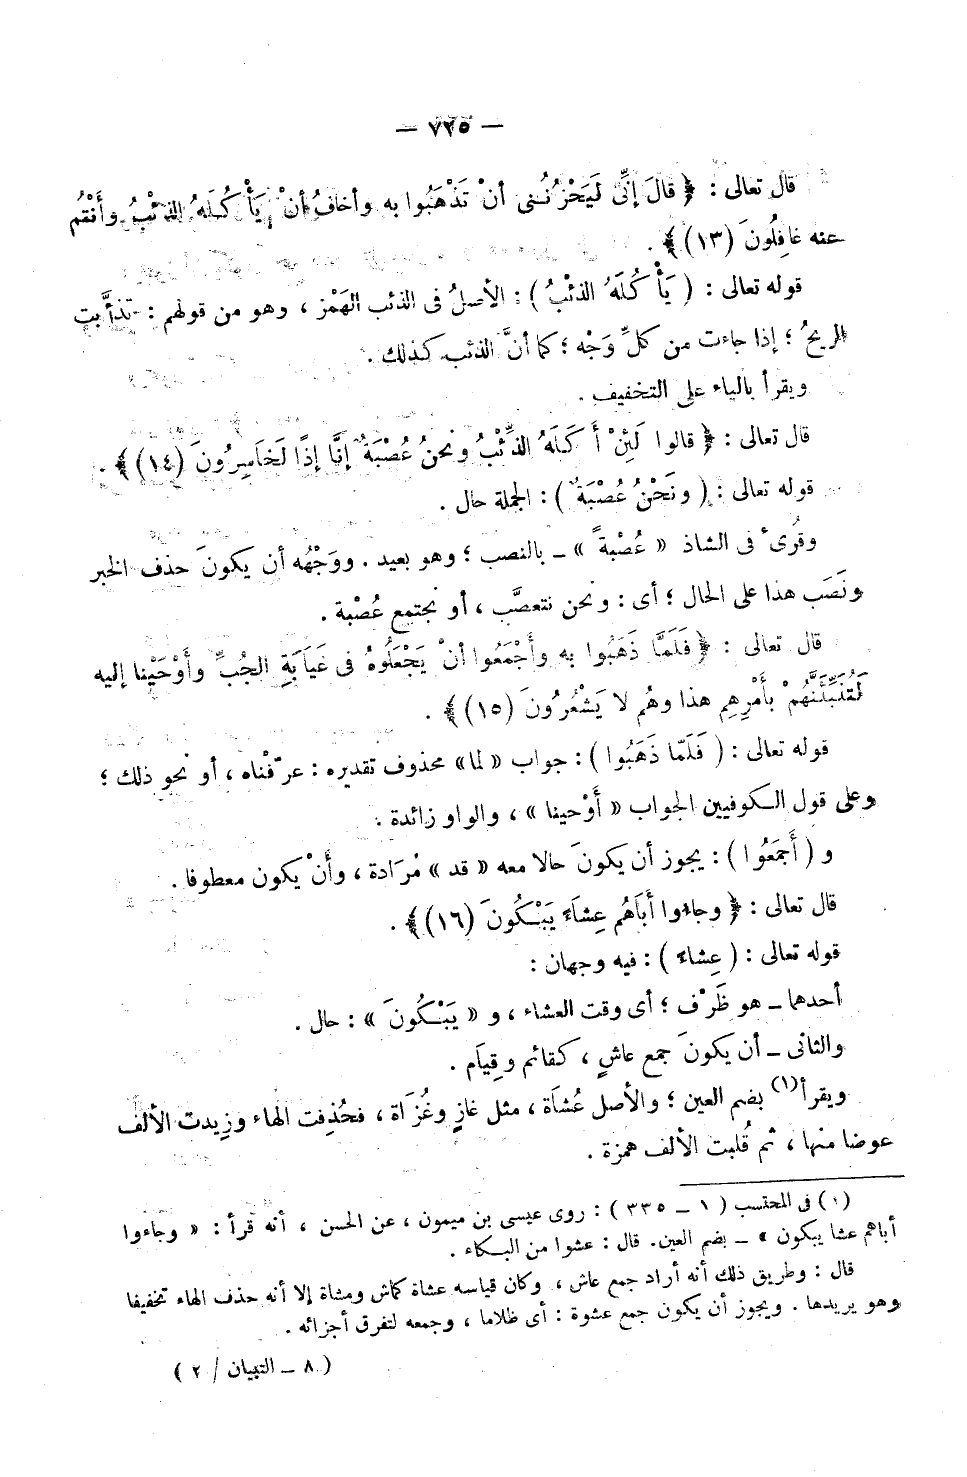 — ٧٢٥ —
قال تعالى : ﴿ قالَ إنِّى لَيَحْزُنُنى أنْ تَذْهَبُوا به وأخافُ أنْ يَأْكُلَهُ الذئْبُ وأَنْتُم
عنه غافِلُونَ (١٣) ﴾ .
قوله تعالى : ( يَأْكُلَهُ الذئْبُ ) : الأصلُ فى الذئب الهَمْز ، وهو من قولهم : تذأَّبت
الريحُ ؛ إذا جاءت من كلِّ وَجْه ؛ كما أنَّ الذئب كذلك .
ويقرأ بالياء على التخفيف .
قال تعالى : ﴿ قالوا لَئِنْ أَكَلَهُ الذِّئْبُ ونحنُ عُصْبَةٌ إنَّا إذًا لَخَاسِرُونَ (١٤) ﴾ .
قوله تعالى : ( ونَحْنُ عُصْبَةٌ ) : الجملة حال .
وقُرِىءَ فى الشاذ « عُصْبةً » ـ بالنصب ؛ وهو بعيد . ووَجْهُه أن يكونَ حذف الخبر
ونَصَب هذا على الحال ؛ أى : ونحن نتعصَّب ، أو نجتمع عُصْبة .
قال تعالى : ﴿ فَلَمَّا ذَهَبُوا به وأَجْمَعُوا أنْ يَجْعَلُوهُ فى غَيَابَةِ الجُبِّ وأَوْحَيْنا إليه
لَتُنَبِّئَنَّهُمْ بأَمْرِهِم هذا وهُم لا يَشْعُرُونَ (١٥) ﴾ .
قوله تعالى : ( فَلَمّا ذَهَبُوا ) : جواب « لما » محذوف تقديره : عرّفْناه ، أو نحو ذلك ؛
وعلى قول الكوفيين الجواب « أَوْحينا » ، والواو زائدة .
و ( أَجمَعُوا ) : يجوز أن يكونَ حالا معه « قد » مُرَادة ، وأنْ يكون معطوفا .
قال تعالى : ﴿ وجاءوا أَبَاهُم عِشاءً يَبْكُونَ (١٦) ﴾ .
قوله تعالى : ( عِشاءً ) : فيه وجهان :
أحدهما ـ هو ظَرْف ؛ أى وقت العشاء ، و « يَبْكُونَ » : حال .
والثانى ـ أن يكونَ جمع عاشٍ ، كقائم وقِيَام .
ويقرأ(١) بضم العين ؛ والأصل عُشَاة ، مثل غازٍ وغُزَاة ، فحُذِفت الهاء وزِيدت الألف
عوضا منها ، ثم قُلبت الألف همزة .
(١) فى المحتسب ( ١ ـ ٣٣٥ ) : روى عيسى بن ميمون ، عن الحسن ، أنه قرأ : « وجاءوا
أباهم عشا يبكون » ـ بضم العين. قال : عشوا من البكاء .
قال : وطريق ذلك أنه أراد جمع عاش ، وكان قياسه عشاة كماش ومشاة إلا أنه حذف الهاء تخفيفا
وهو يريدها . ويجوز أن يكون جمع عشوة : أى ظلاما ، وجمعه لتفرق أجزائه .
( ٨ ـ التبيان / ٢ )